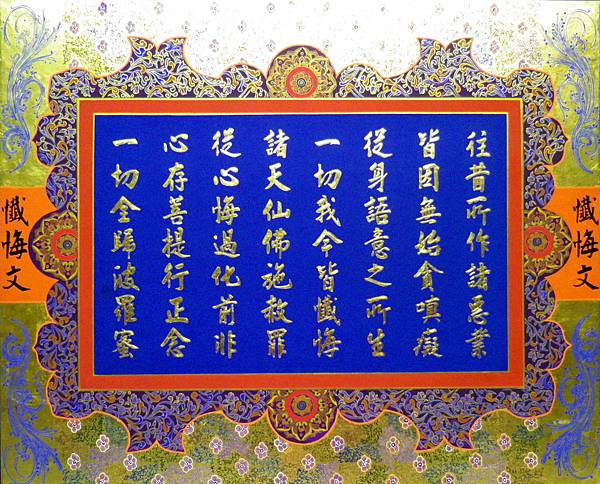 懺悔文
往昔所作諸惡業
皆因無始貪嗔癡
從身語意之所生
一切我今皆懺悔
諸天仙佛施赦罪
從心悔過化前非
心存菩提行正念
一切全歸波羅蜜
懺悔文